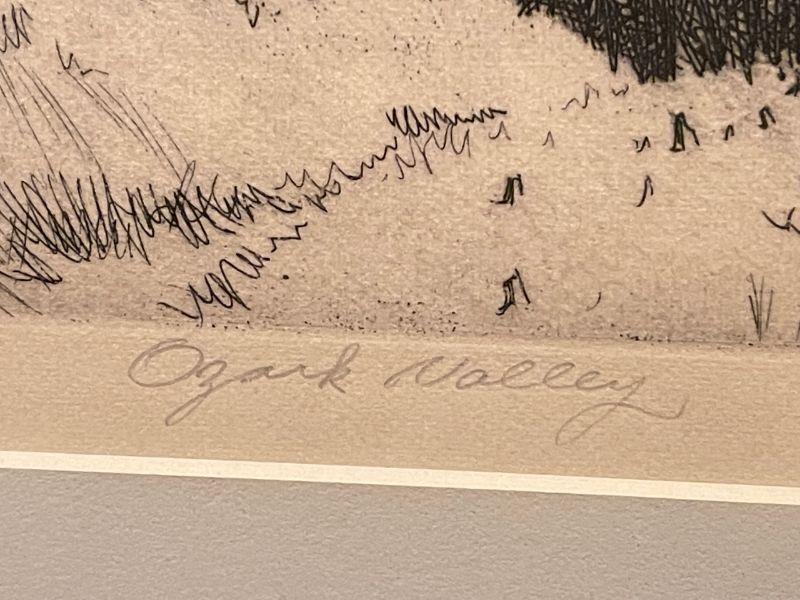 Ozark Valley